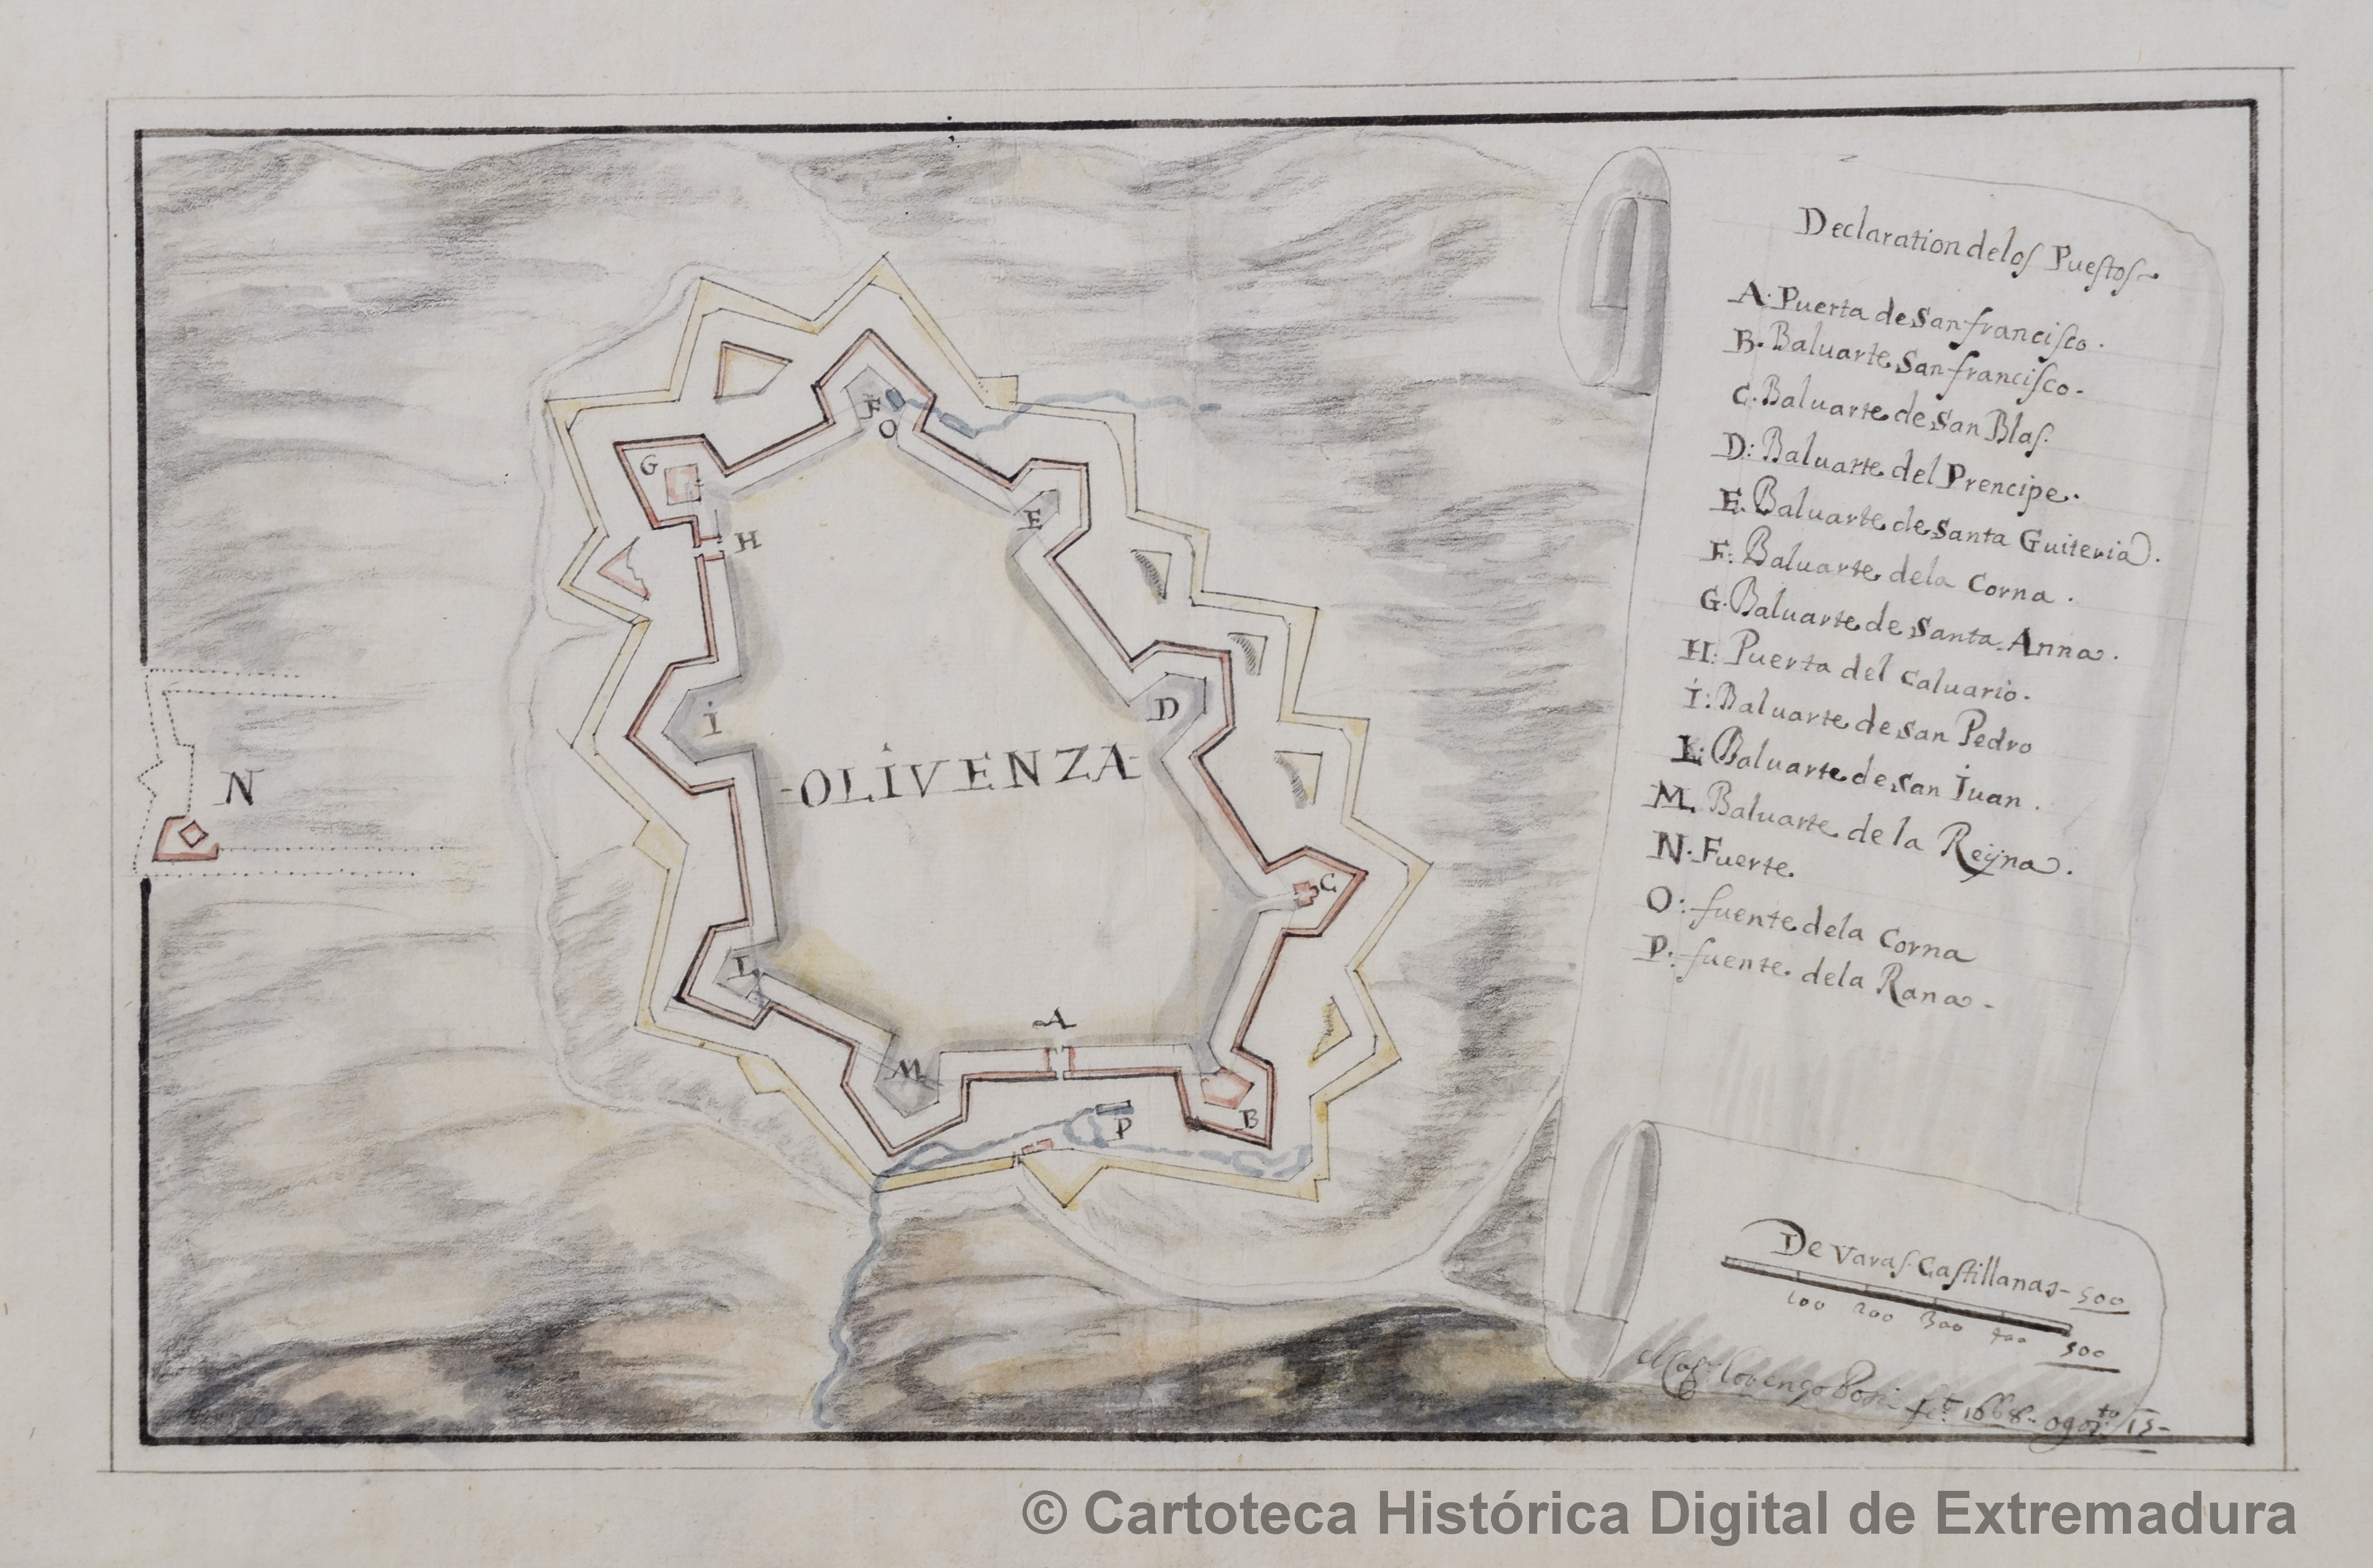 Declaration de los Puestos
A. Puerta de San francisco.
B. Baluarte San francisco.
C. Baluarte de San Blas.
D: Baluarte del Prencipe.
E. Baluarte de Santa Guiteria.
F: Baluarte dela Corna.
G. Baluarte de Santa Anna.
H: Puerta del Caluario.
I: Baluarte de San Pedro
L: Baluarte de San Iuan.
M. Baluarte de la Reyna.
N. Fuerte.
O: fuente dela Corna
P. fuente dela Rana
F
O
G
E
H
I
D
OLIVENZA
N
C
L
A
M
P
B
De Varas Castillanas 500
100 200 300 400 500
Lorenço Possi 1668 15
© Cartoteca Histórica Digital de Extremadura